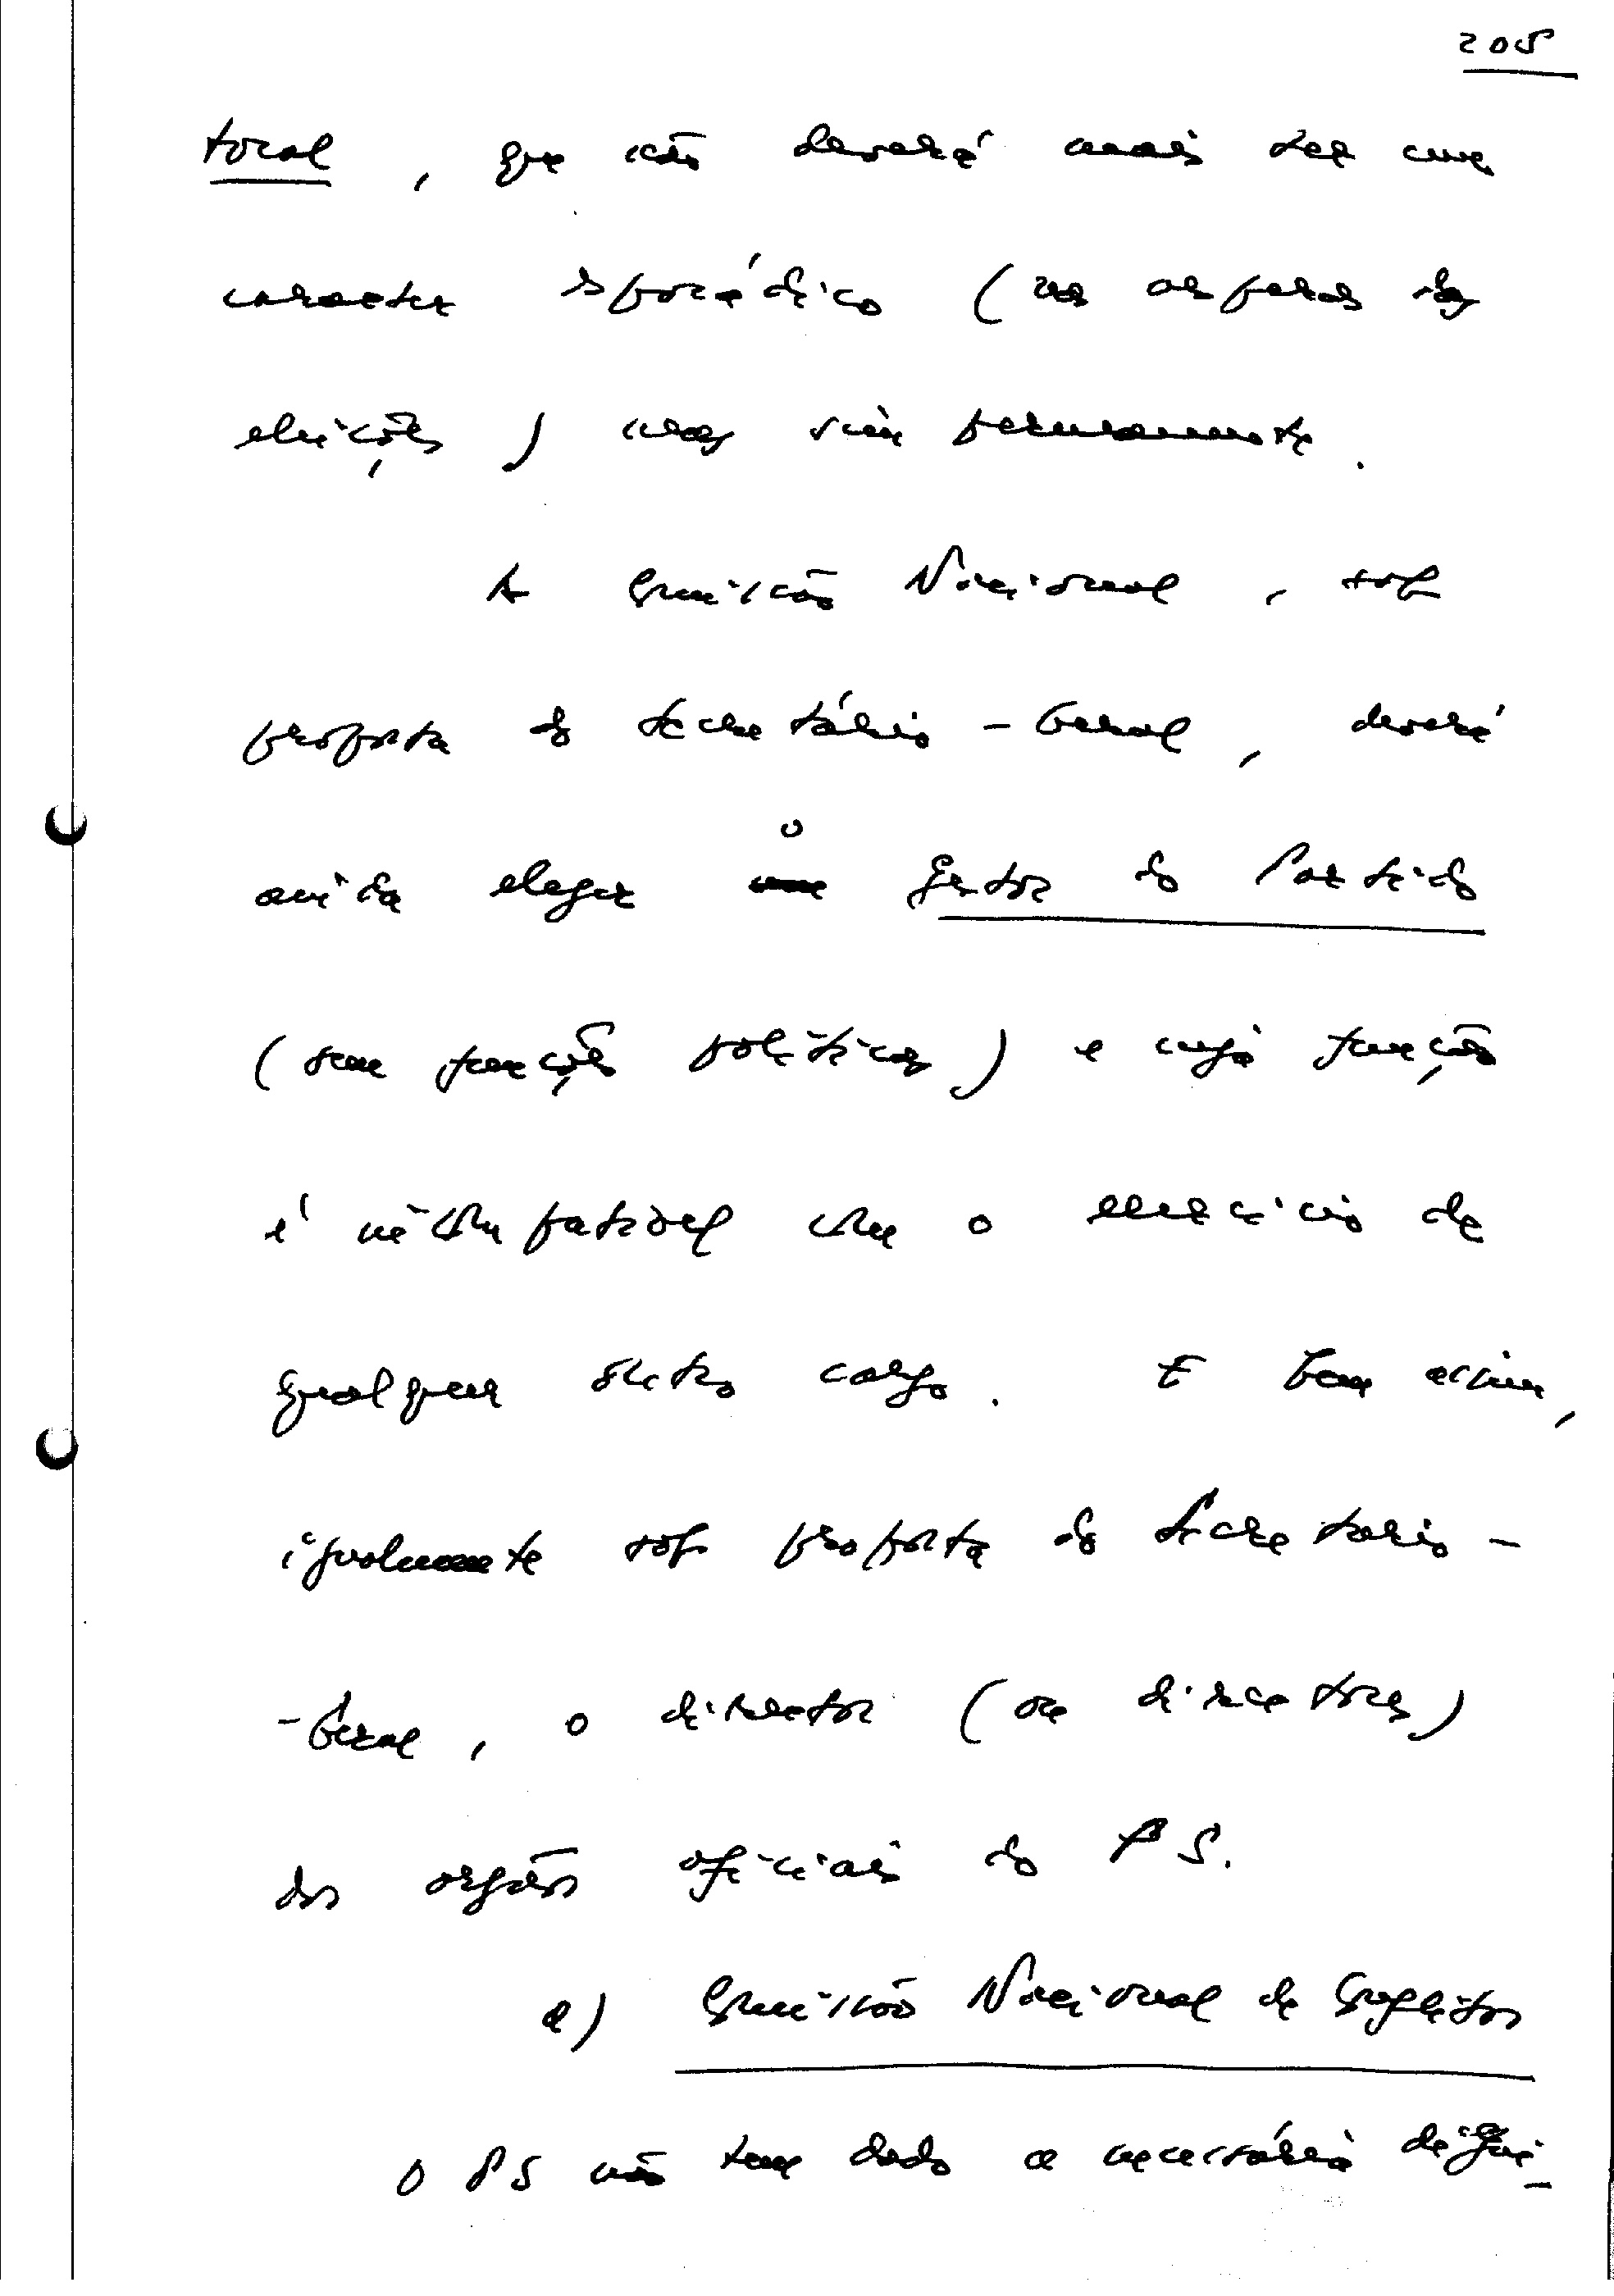 205
toral, que não deverá mais ter um
caracter esporádico (nas vésperas das
eleições) mas sim permanente.
A Comissão Nacional, sob
proposta do Secretário-Geral, deverá
ainda eleger o Gestor do Partido
(sem funções políticas) e cuja função
é incompatível com o exercício de
qualquer outro cargo. E bem assim,
igualmente sob proposta do Secretario-
-Geral, o director (ou directores)
dos orgãos oficiais do PS.
e) Comissão Nacional de Conflitos
O PS não tem dado a necessária digni-